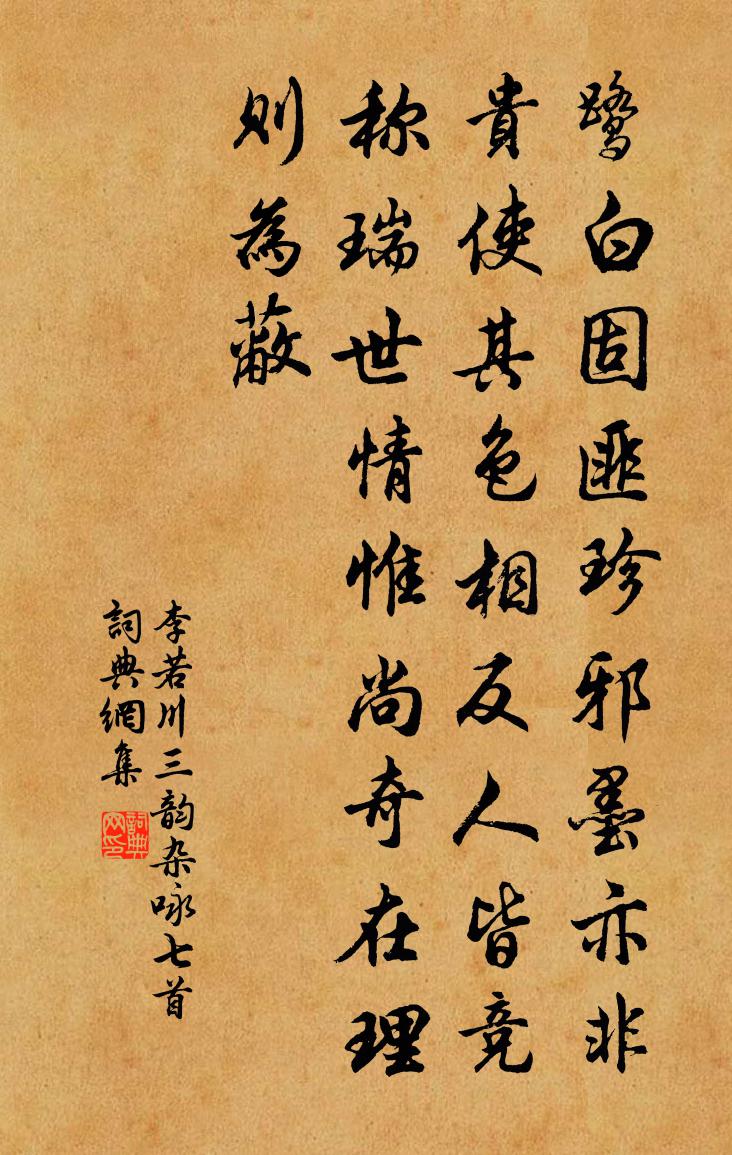 鹭白固匪珍邪墨亦非
貴使其色相反人皆竞
称瑞世情惟尚奇在理
则為蔽
李若川三韵杂咏七首
詞典網集
詞典
网印